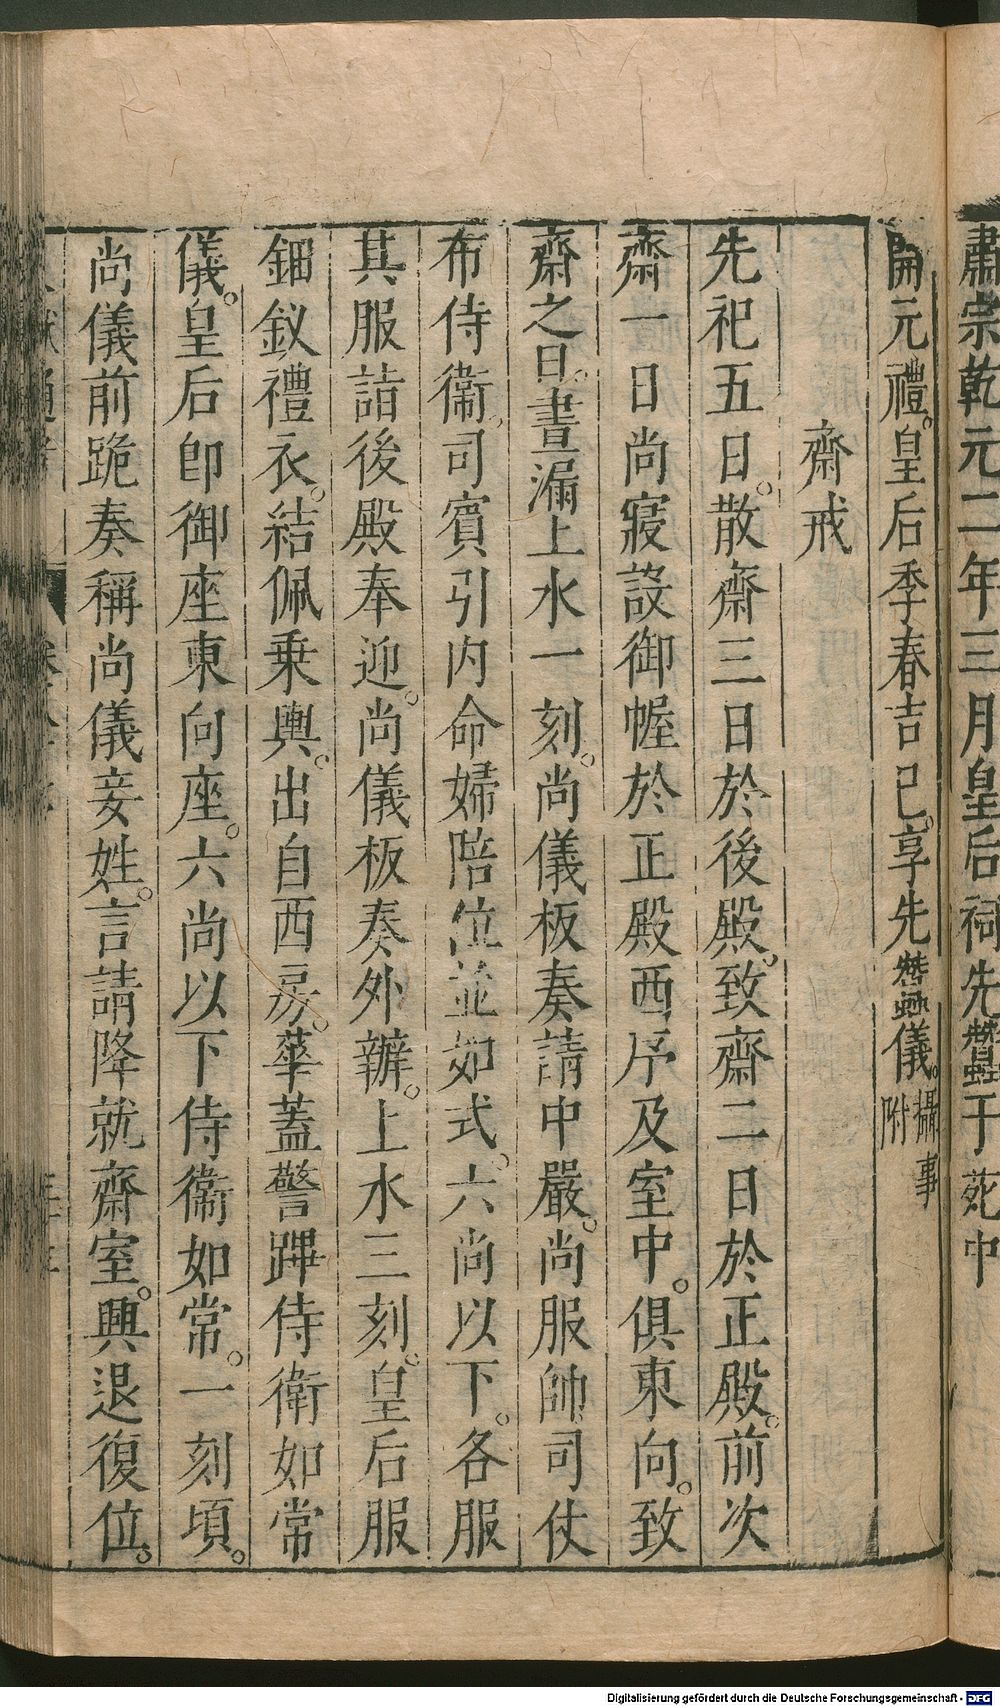 肅宗乾元二年三月皇后祠先蠶于苑中
開元禮。皇后季春吉巳。享先蠶儀。攝事附
齋戒
先祀五日。散齋三日於後殿。致齋二日於正殿。前次
齋一日尚寢設御幄於正殿西序及室中。俱東向。致
齋之日。晝漏上水一刻。尚儀板奏請中嚴。尚服帥司仗
布侍衞。司賓引內命婦陪位並如式。六尚以下。各服
其服詣後殿奉迎。尚儀板奏外辦。上水三刻。皇后服
鈿釵禮衣。結佩乗輿。出自西房。華蓋警蹕侍衛如常
儀。皇后卽御座東向座。六尚以下侍衞如常。一刻頃。
尚儀前跪奏稱尚儀妾姓。言請降就齋室。興退復位。
Digitalisierung gefördert durch die Deutsche Forschungsgemeinschaft - DFG